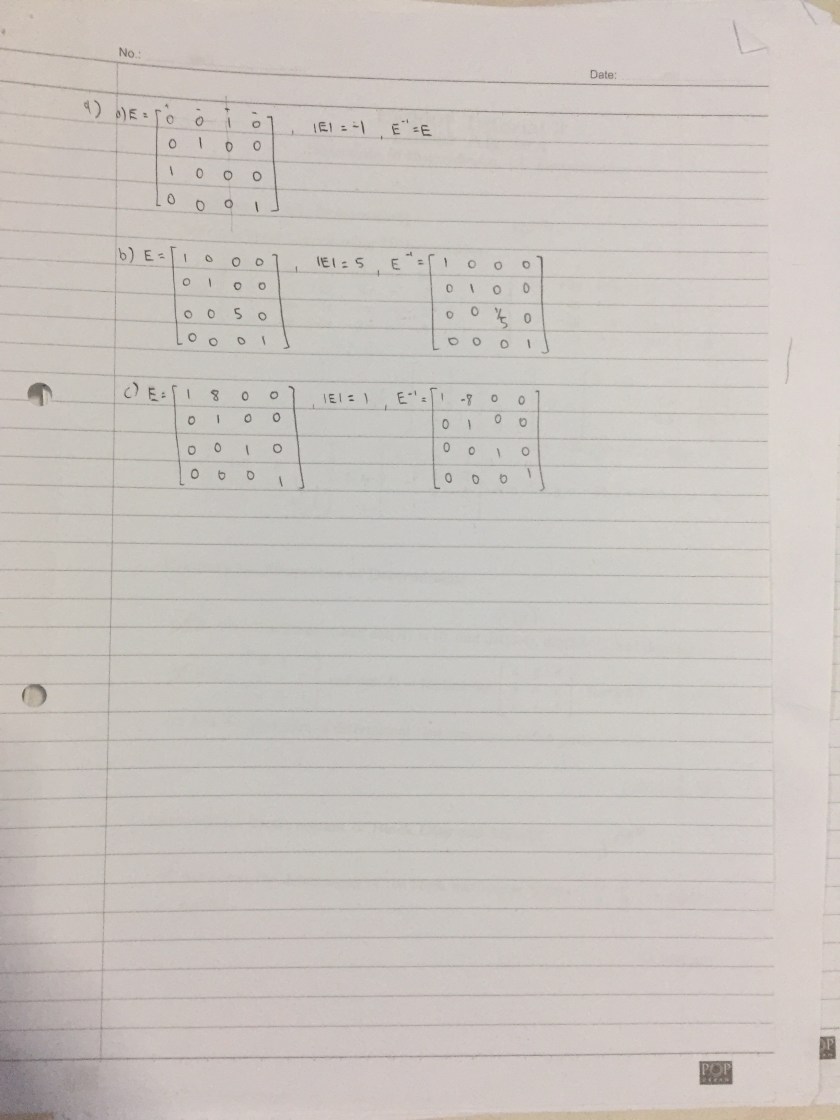 No.:
Date:
9) a) E = [ 0 0 1 0 ] , |E| = -1 , E⁻¹ = E
0 1 0 0
1 0 0 0
0 0 0 1
b) E = [ 1 0 0 0 ] , |E| = 5 , E⁻¹ = [ 1 0 0 0 ]
0 1 0 0 0 1 0 0
0 0 5 0 0 0 1/5 0
0 0 0 1 0 0 0 1
c) E = [ 1 8 0 0 ] , |E| = 1 , E⁻¹ = [ 1 -8 0 0 ]
0 1 0 0 0 1 0 0
0 0 1 0 0 0 1 0
0 0 0 1 0 0 0 1
POP